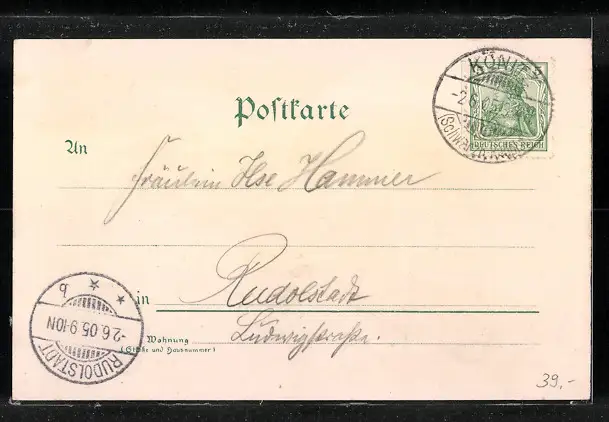 KÖNITZ
-2.6.05
(SCHWRZBG.
DEUTSCHES REICH
Postkarte
An
Fräulein Ilse Hammer
in Rudolstadt
Ludwigstraße.
Wohnung
(Straße und Hausnummer)
RUDOLSTADT
-2.6.05.9-10N
b
39,-